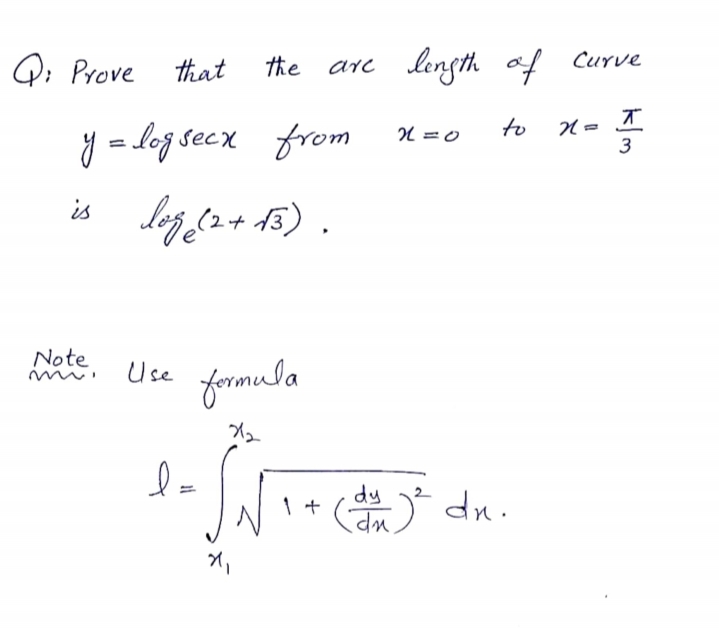 Q: Prove that the arc length of curve
y = log sec x from x = 0 to x = π/3
is logₑ(2 + √3).
Note. Use formula
l = ∫ₓ₁ˣ² √(1 + (dy/dx)²) dx.